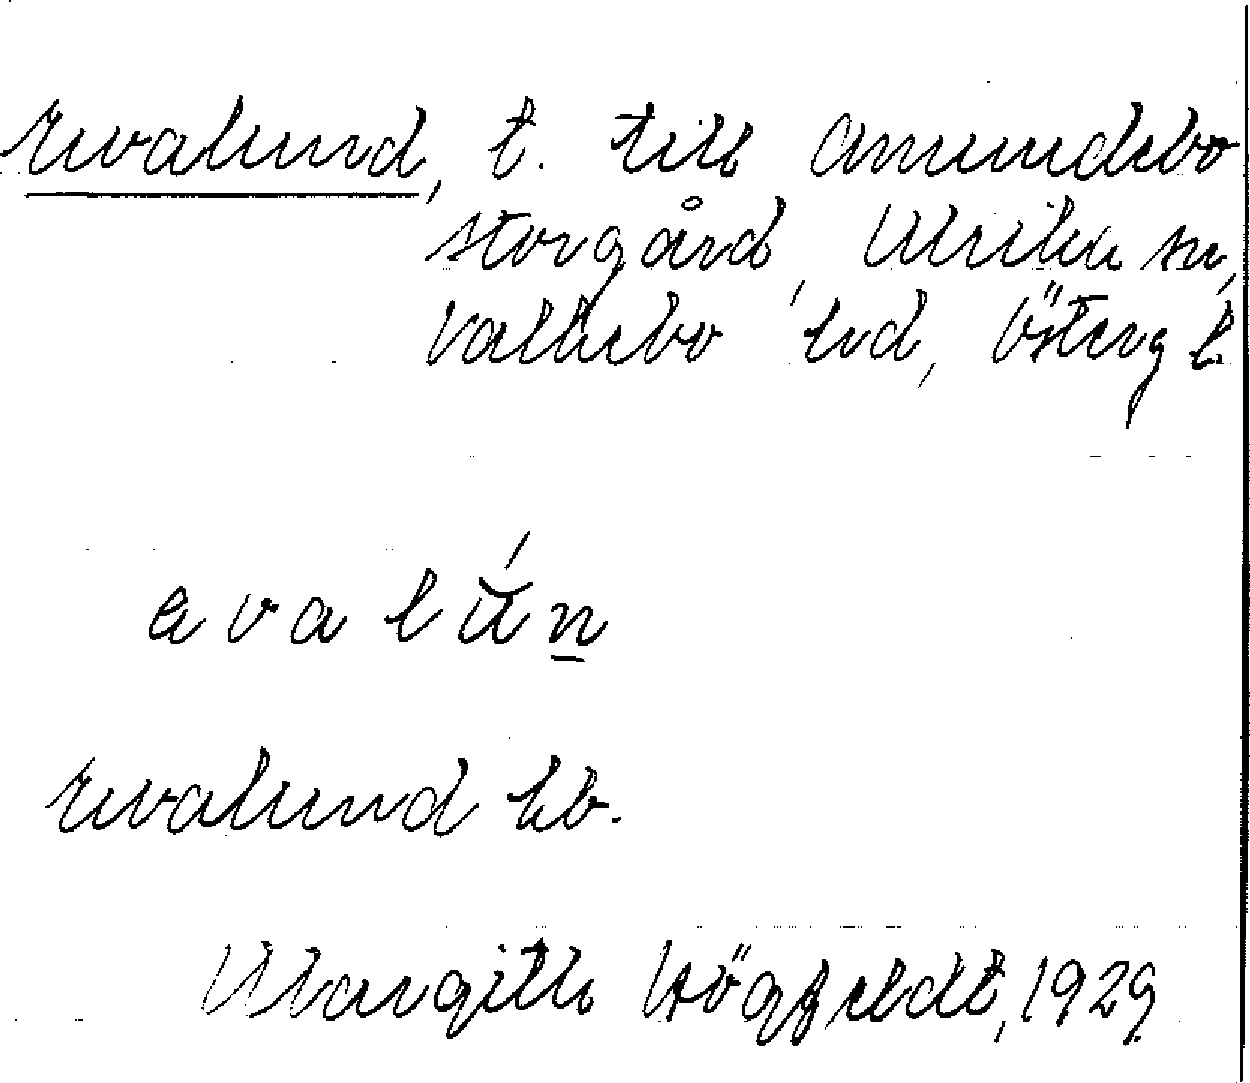 Evalund, t. till Amundebo
storgård, Ulrika sn,
Valkebo hd, Östergl
evalún
Evalund kb.
Margith Högfeldt, 1929